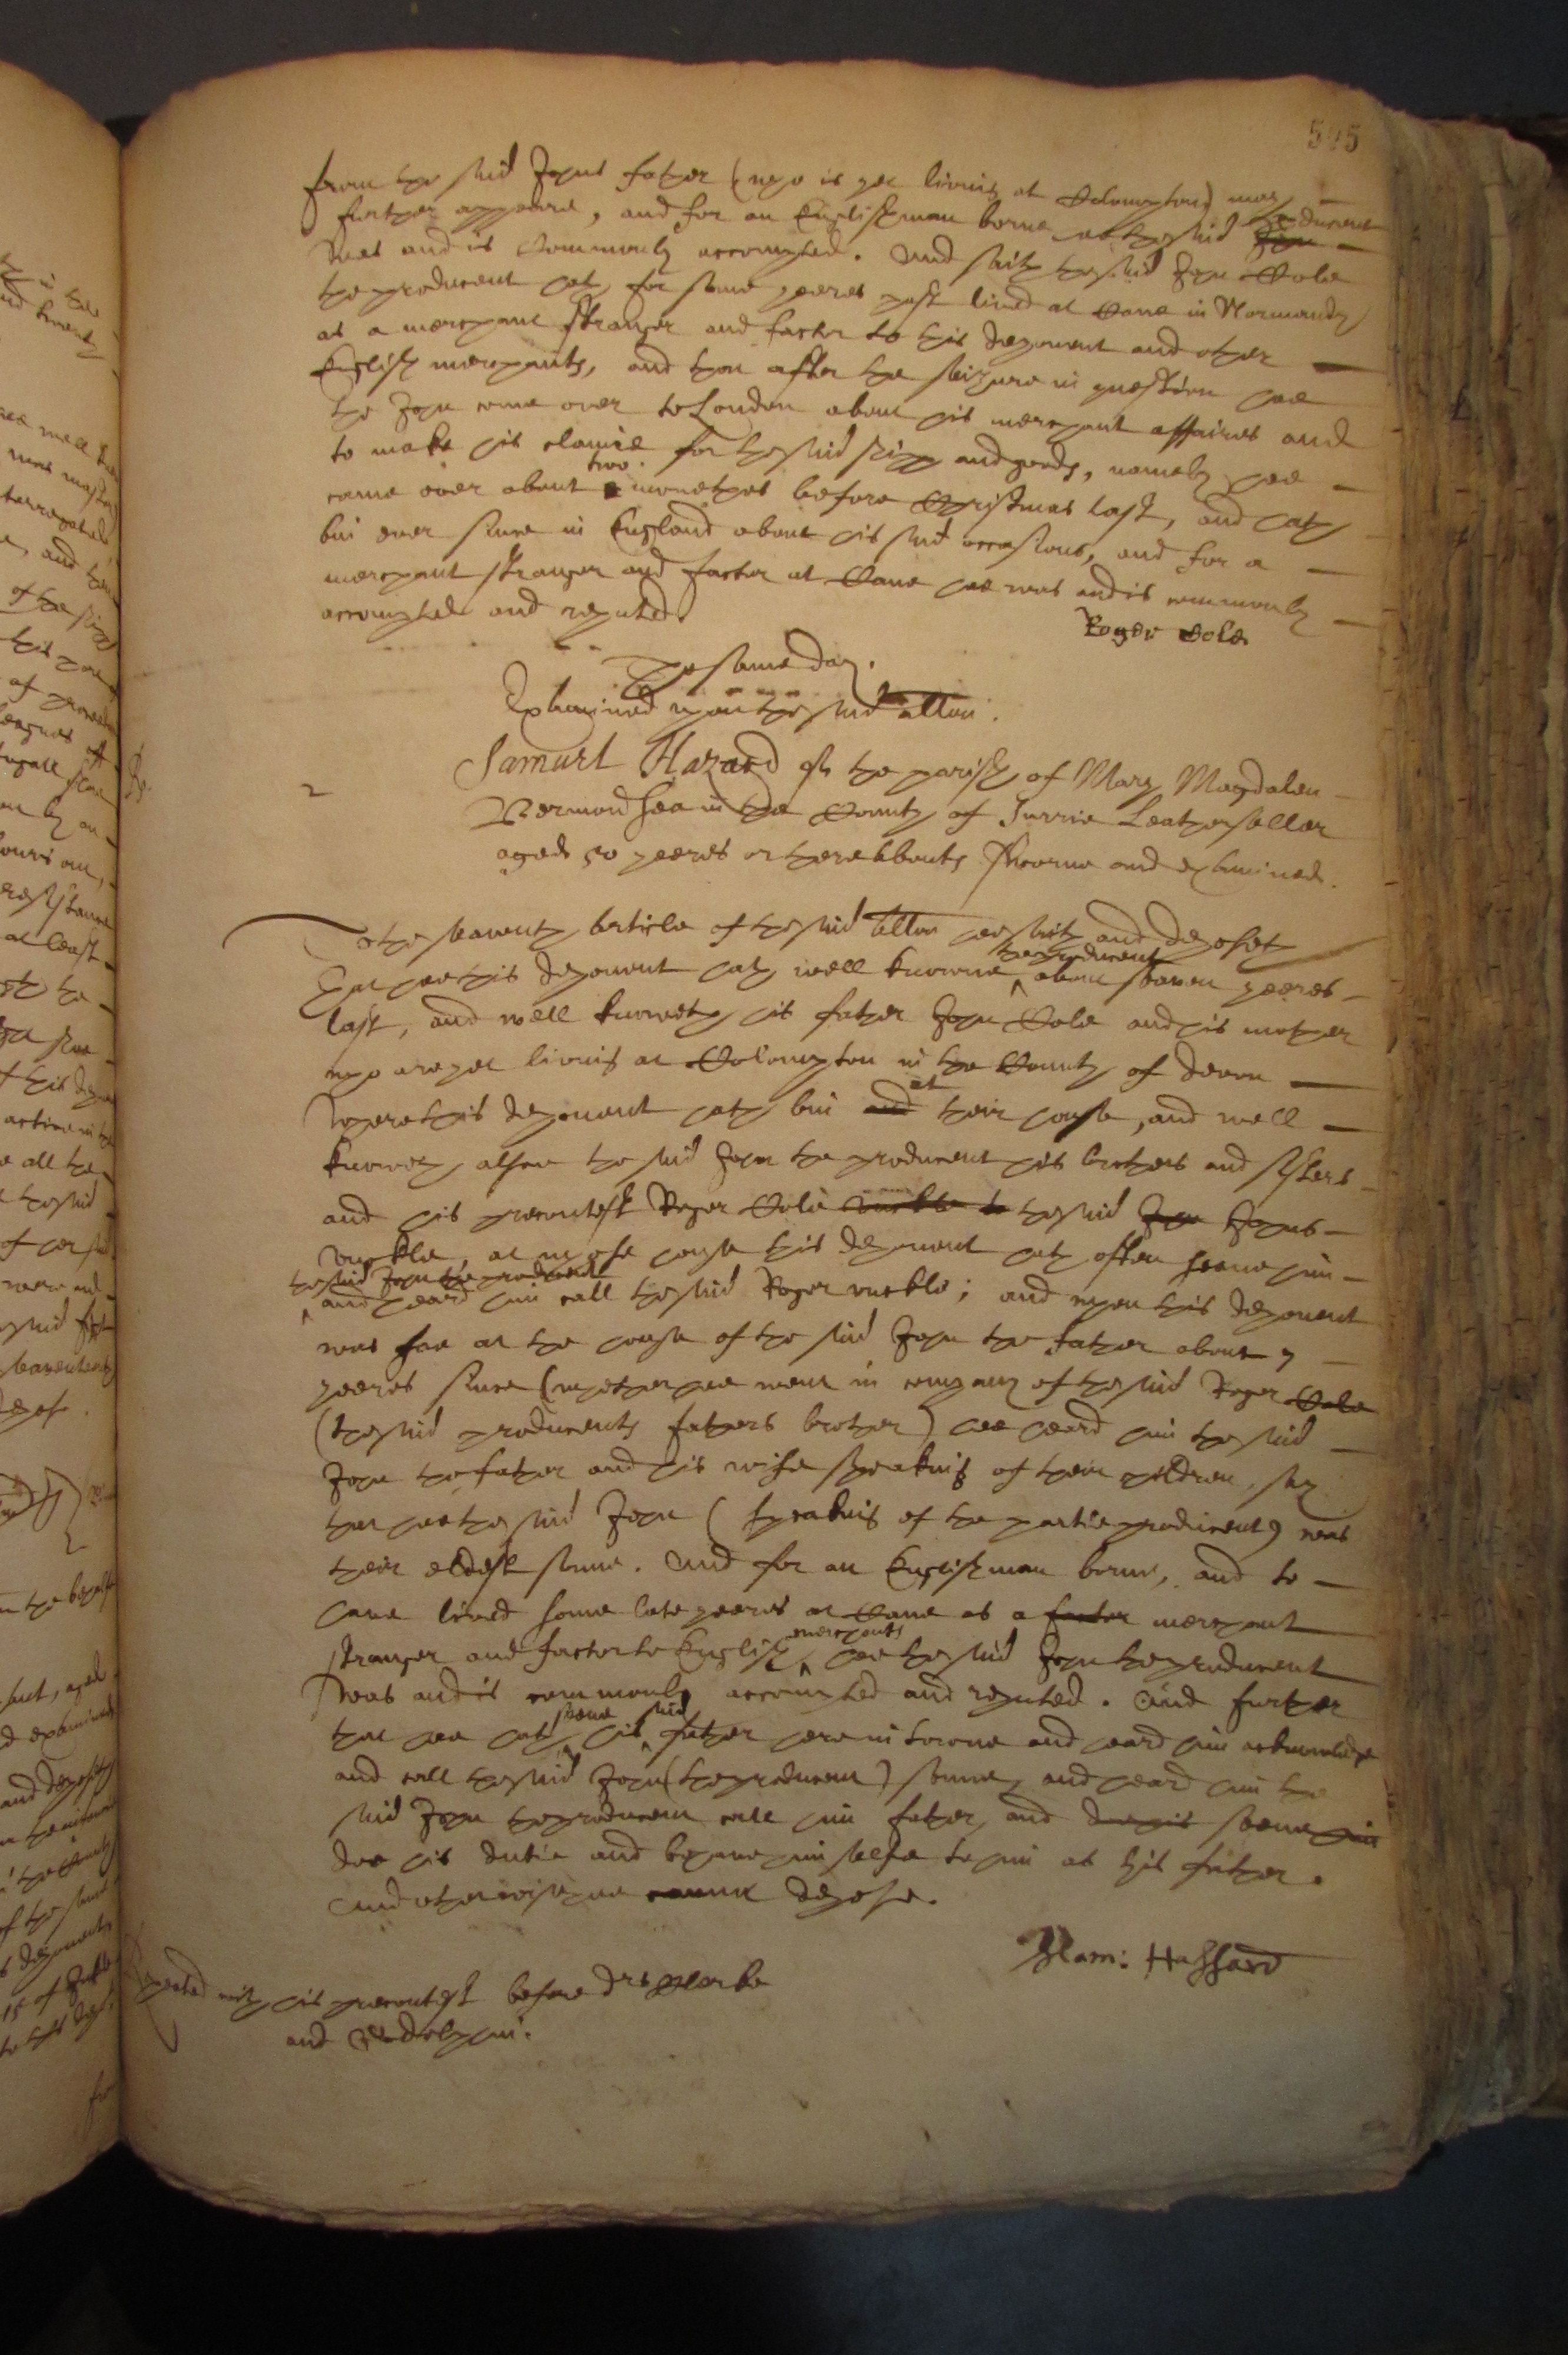 595
from the said Johns father (who is yet living at Columpton) may
further appeare, and for an Englishman borne he the said John producent
was and is commonly accompted. And saith the said John Cole
the producent hath for some yeeres past lived at Cane in Normandy
as a merchant stranger and factor to this deponent and other
English merchants, and that after the seizure in question hee
the John came over to London about his merchant affaires and
to make his claime for the said shipp and goods, namely hee
came over about two monethes before Christmas last, and hath
bin ever since in England about his said occasions, and for a
merchant stranger and factor at Cane hee was and is commonly
accompted and reputed.
Roger Cole
The same day.
Examined upon the said allon.
2
Samuel Hazard of the parish of Mary Magdalen
Bermondsea in the County of Surrie Leatherseller
aged 50 yeeres or thereabouts sworne and examined.
To the seaventh article of the said allon hee saith and deposeth
That hee this deponent hath well knowne the producent about seaven yeeres
last, and well knoweth his father John Cole and his mother
who are yet living at Columpton in the County of Devon
where this deponent hath bin and at their house, and well
knoweth alsoe the said John the producent his brothers and sisters
and his precontest Roger Cole unckle to the said John Johns
unckle, at whose house this deponent hath often seene him
the said John the producent
and heard him call the said Roger unckle; and when this deponent
was soe at the house of the said John the father about 7
yeeres since (whether hee went in company of the said Roger Cole
(the said producents fathers brother) hee heard him the said
John the father and his wife speaking of their children, say
that hee the said John (speaking of the partie producent) was
their eldest sonne. And for an Englishman borne, and to
have lived some late yeeres at Cane as a factor merchant
stranger and factor to English merchants hee the said John the producent
was and is commonly accompted and reputed. And further
that hee hath seene his said father here in towne and heard him acknowledge
and call the said John (the producent) sonne, and heard him the
said John the producent call him father, and doe his seene him
doe his dutie and behave himselfe to him as his father.
And otherwise hee cannot depose.
Sam: Hassard
Repeated with his precontest before drs Clerke
and Godolphin.